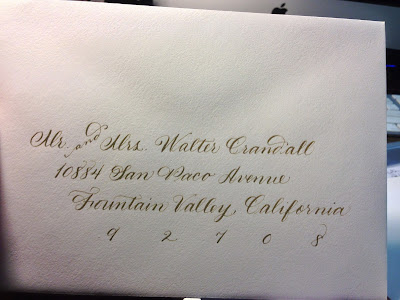 Mr. and Mrs. Walter Crandall
10884 San Paco Avenue
Fountain Valley, California
9 2 7 0 8